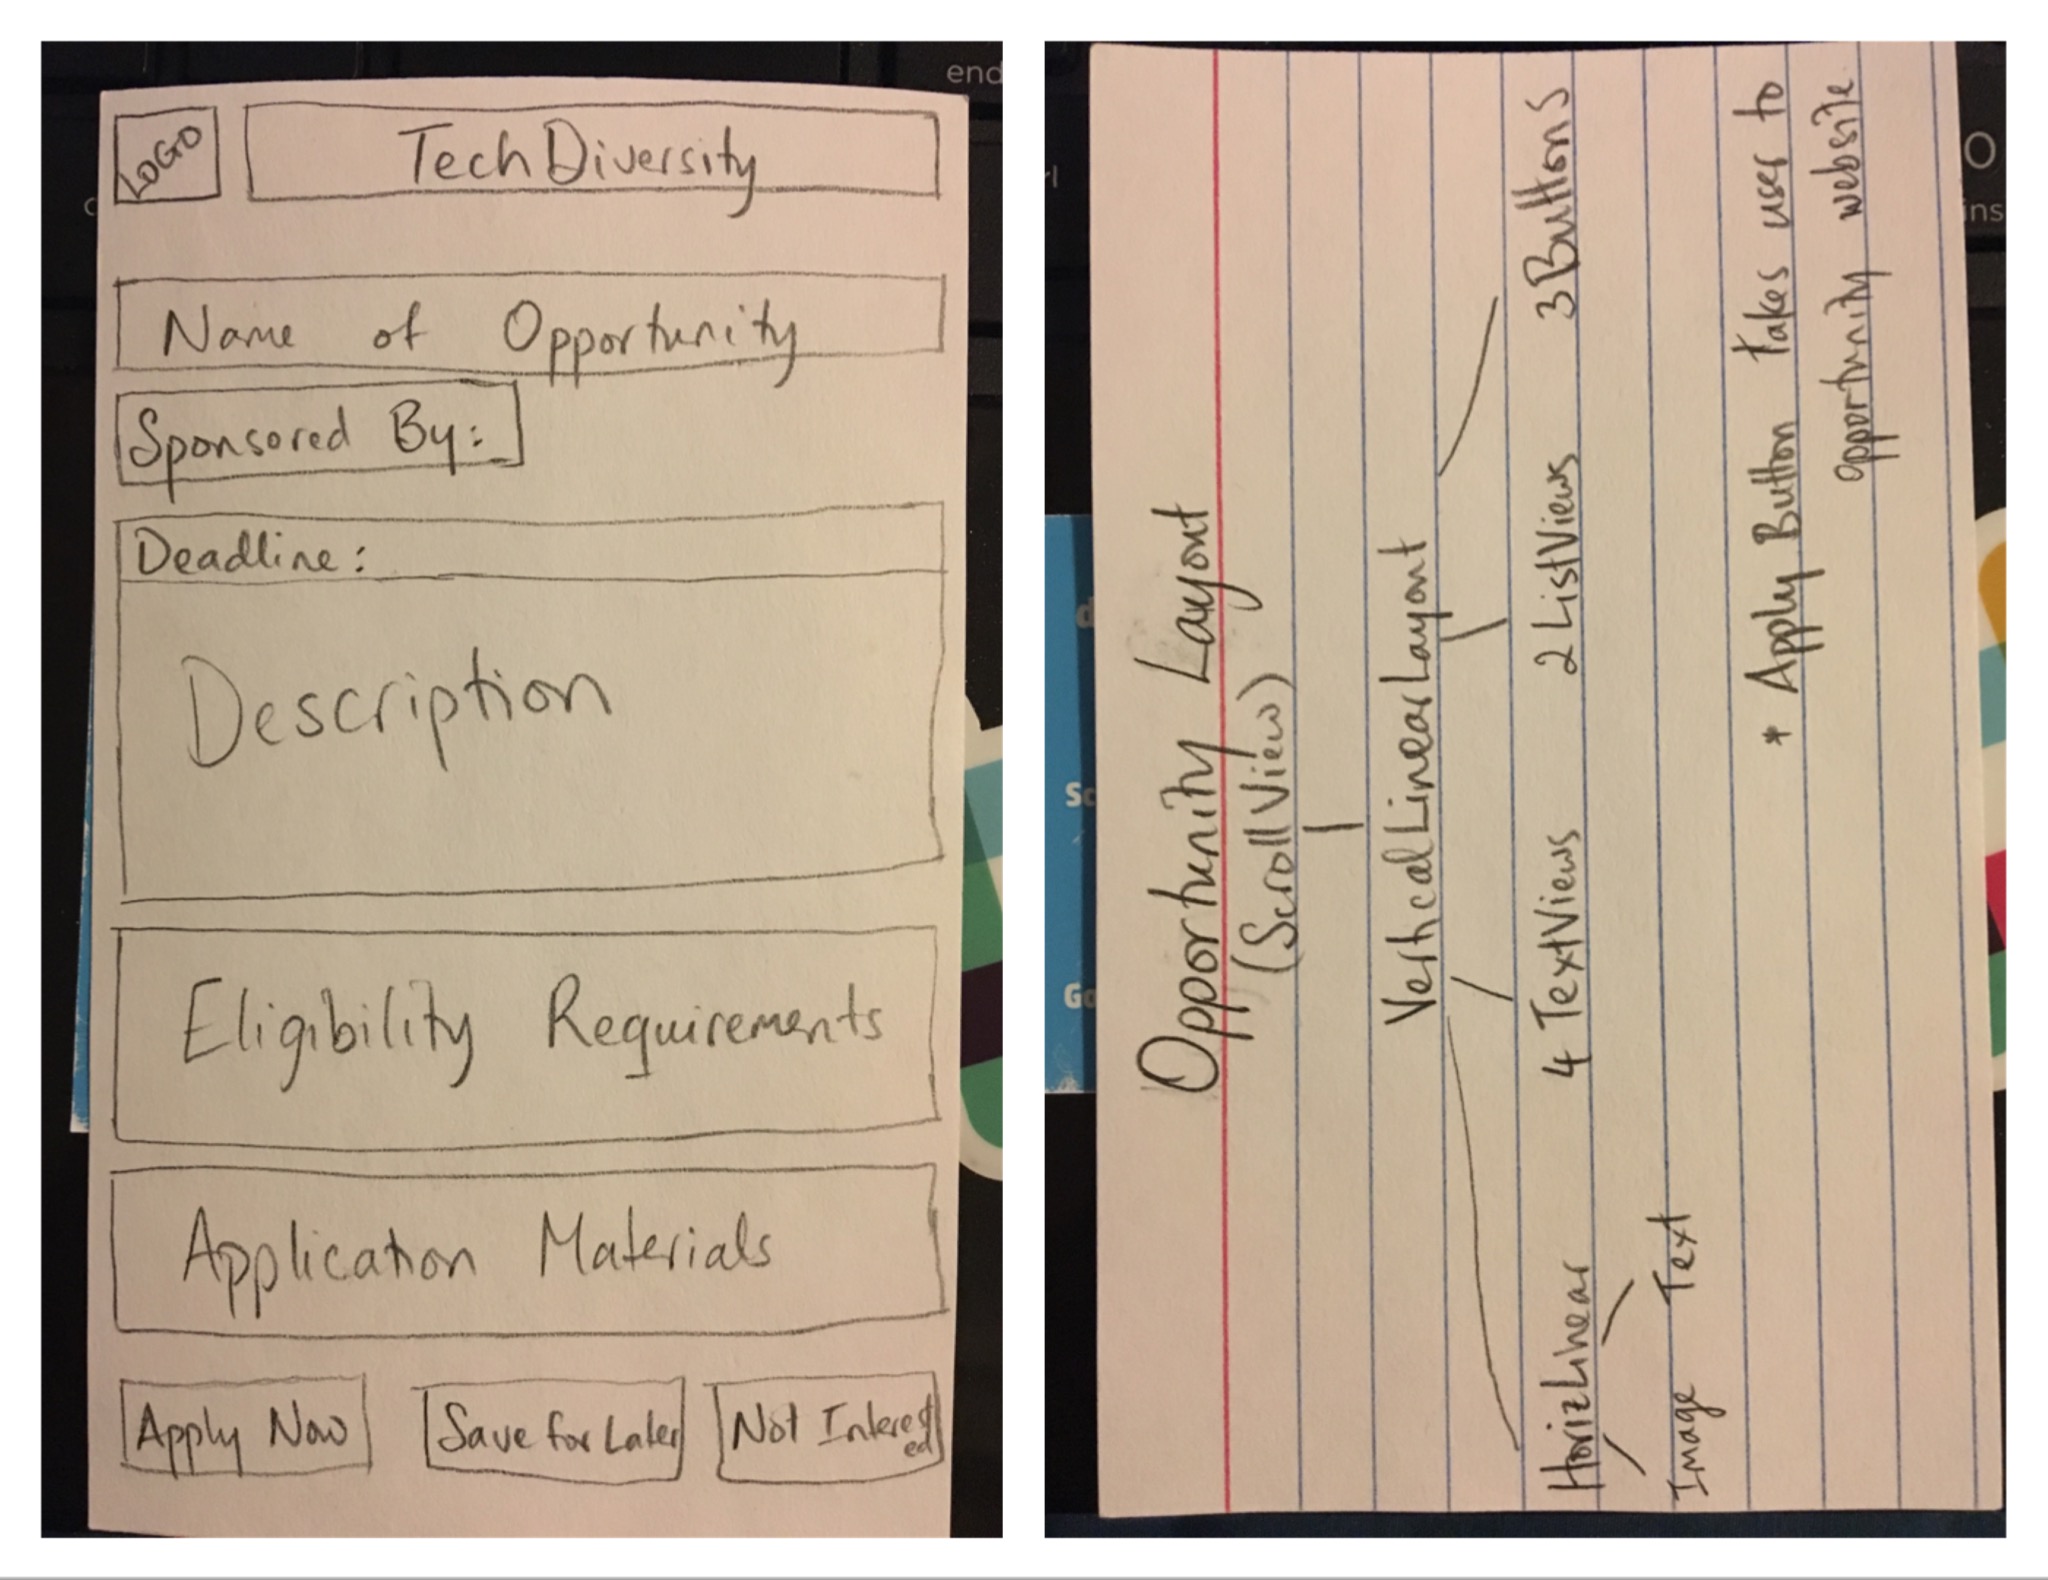 end
LOGO
TechDiversity
Name of Opportunity
Sponsored By:
Deadline:
Description
Eligibility Requirements
Application Materials
Apply Now
Save for Later
Not Interest
ed
Opportunity Layout
(ScrollView)
VerticalLinearLayout
HorizLinear
4 TextViews
2 ListViews
3 Buttons
Image
Text
* Apply Button takes user to
opportunity website
ins